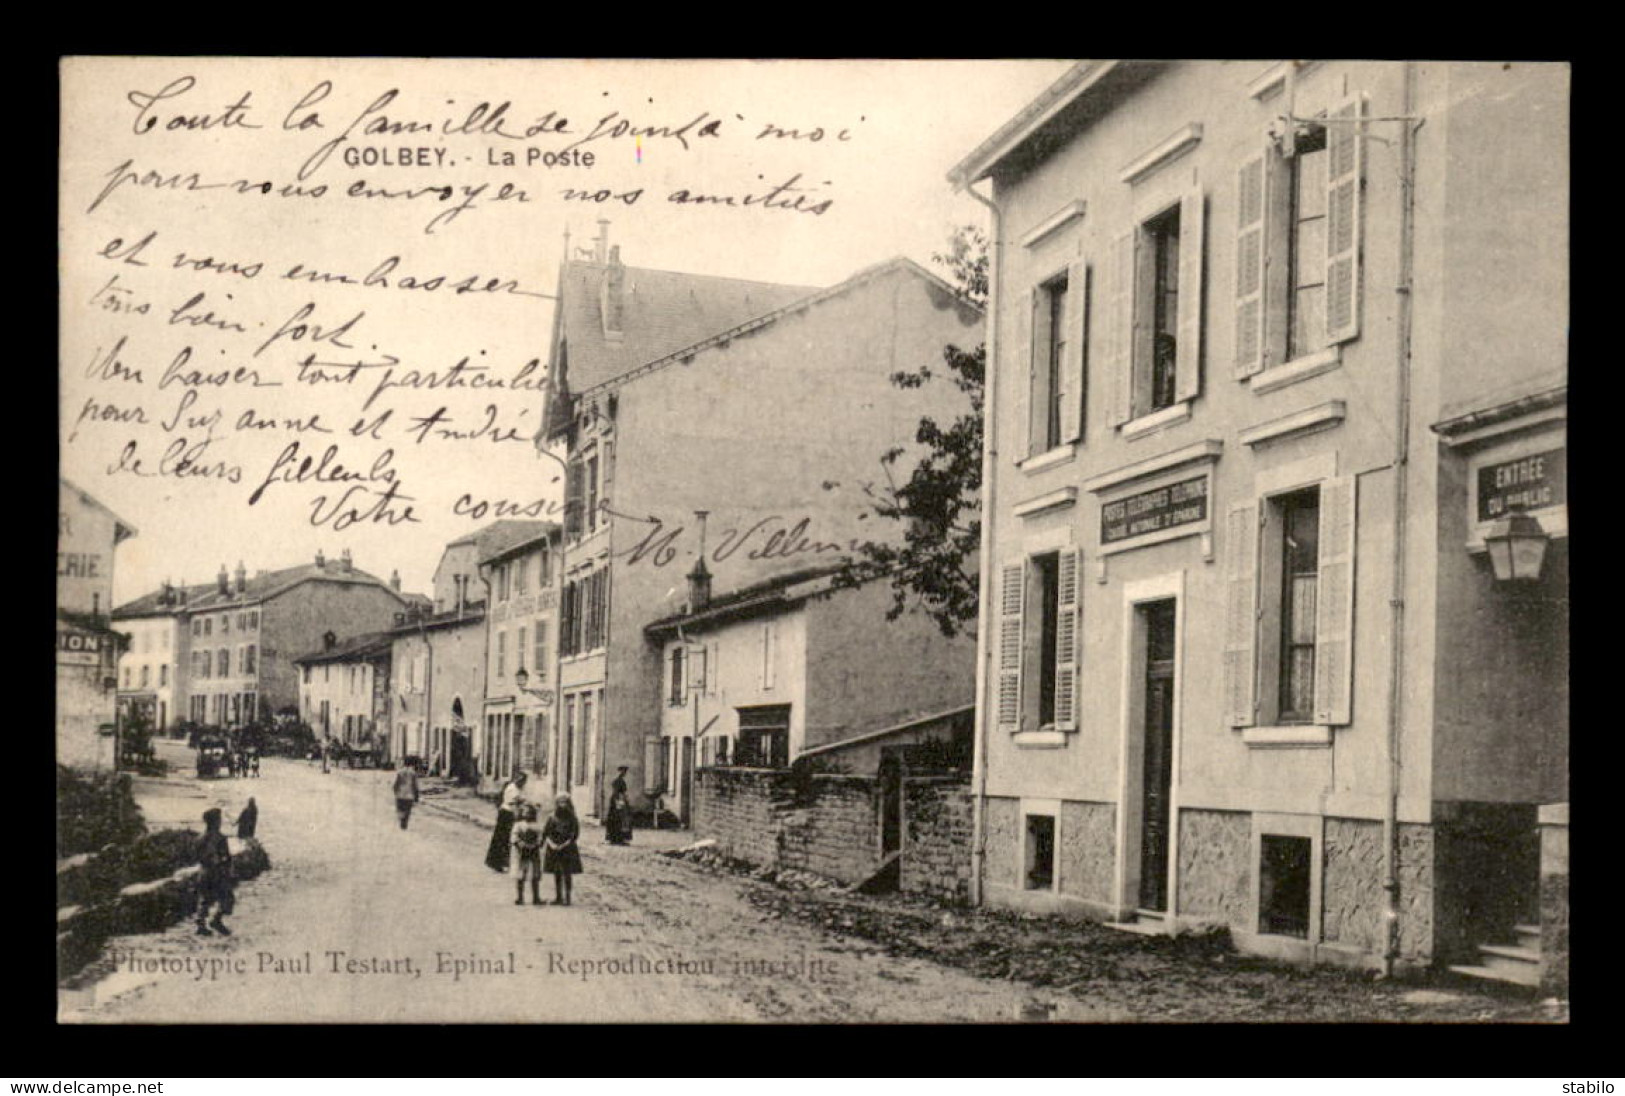 Toute la famille se joint à moi
GOLBEY. - La Poste
pour vous envoyer nos amitiés
et vous embrasser
tous bien fort.
Un baiser tout particulier
pour Suzanne et André
de leurs filleuls
Votre cousine
M. Villemin
ERIE
ION
POSTES TÉLÉGRAPHES TÉLÉPHONE
CAISSE NATIONALE D'ÉPARGNE
ENTRÉE
DU PUBLIC
Phototypie Paul Testart, Epinal - Reproduction interdite
www.delcampe.net
stabilo